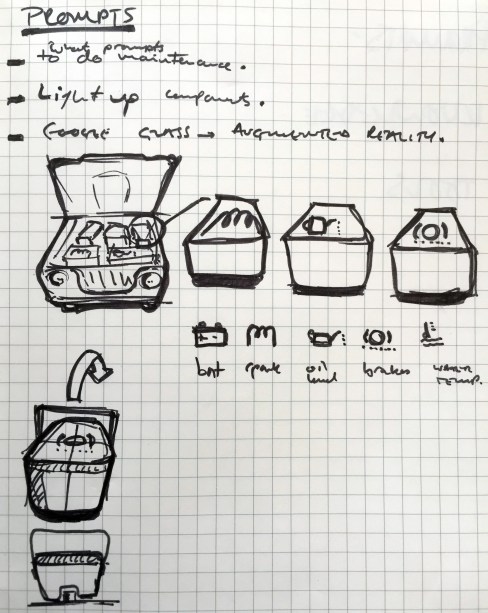 PROMPTS
What prompts
to do maintenance.
Light up components.
GOOGLE GLASS → AUGMENTED REALITY.
bat spark oil level brakes WATER TEMP.